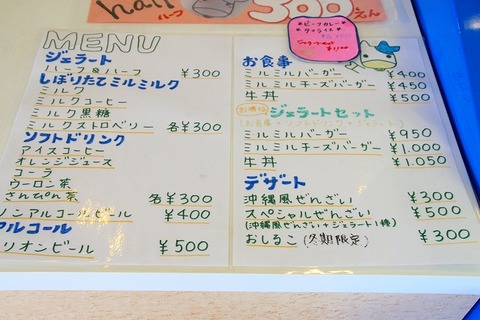 half
ハーフ
300えん
MENU
ジェラート
ハーフ&ハーフ ¥300
しぼりたてミルミルミルク
ミルク
ミルクコーヒー
ミルク黒糖
ミルクストロベリー 各¥300
ソフトドリンク
アイスコーヒー
オレンジジュース
コーラ
ウーロン茶
さんぴん茶 各¥300
ノンアルコールビール ¥400
アルコール
オリオンビール ¥500
ビーフカレー
タコライス
お食事
ミルミルバーガー ¥400
ミルミルチーズバーガー ¥450
牛丼 ¥500
お得な ジェラートセット
(お食事+ソフトドリンク+ジェラート)
ミルミルバーガー ¥950
ミルミルチーズバーガー ¥1,000
牛丼 ¥1,050
デザート
沖縄風ぜんざい ¥300
スペシャルぜんざい ¥500
(沖縄風ぜんざい+ジェラート1種)
おしるこ(冬期限定) ¥300